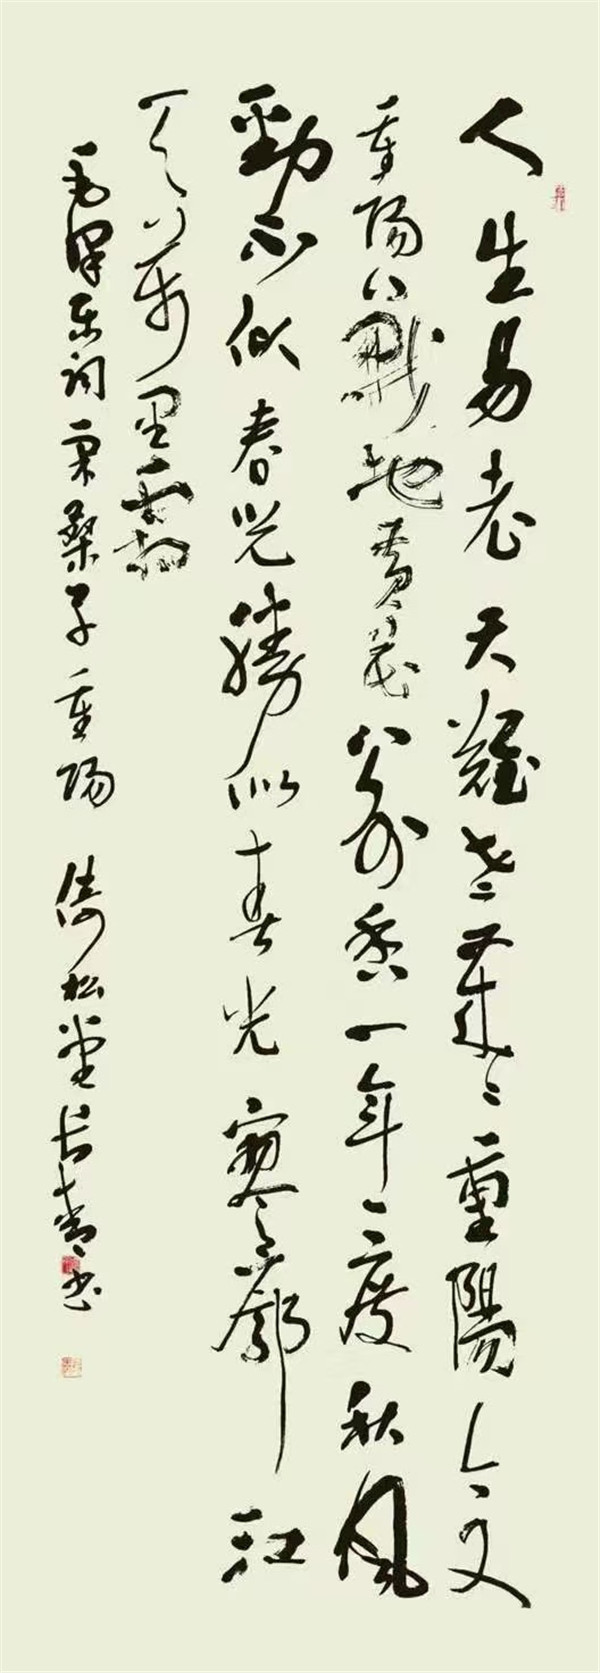 人生易老天難老歲〻重陽今又
重陽戰地黃花分外香一年一度秋風
勁不似春光勝似春光寥廓江
天萬里霜
毛澤東詞采桑子重陽 倚松堂長青书